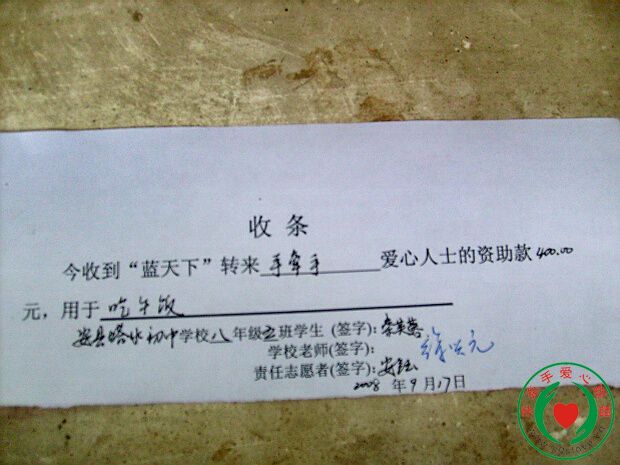 收条
今收到“蓝天下”转来 手牵手 爱心人士的资助款 400.00
元，用于 吃午饭
安县塔水初中学校八年级五班学生（签字）：李英蓉
学校老师（签字）：
责任志愿者（签字）：安钰
2008 年 9 月 17 日